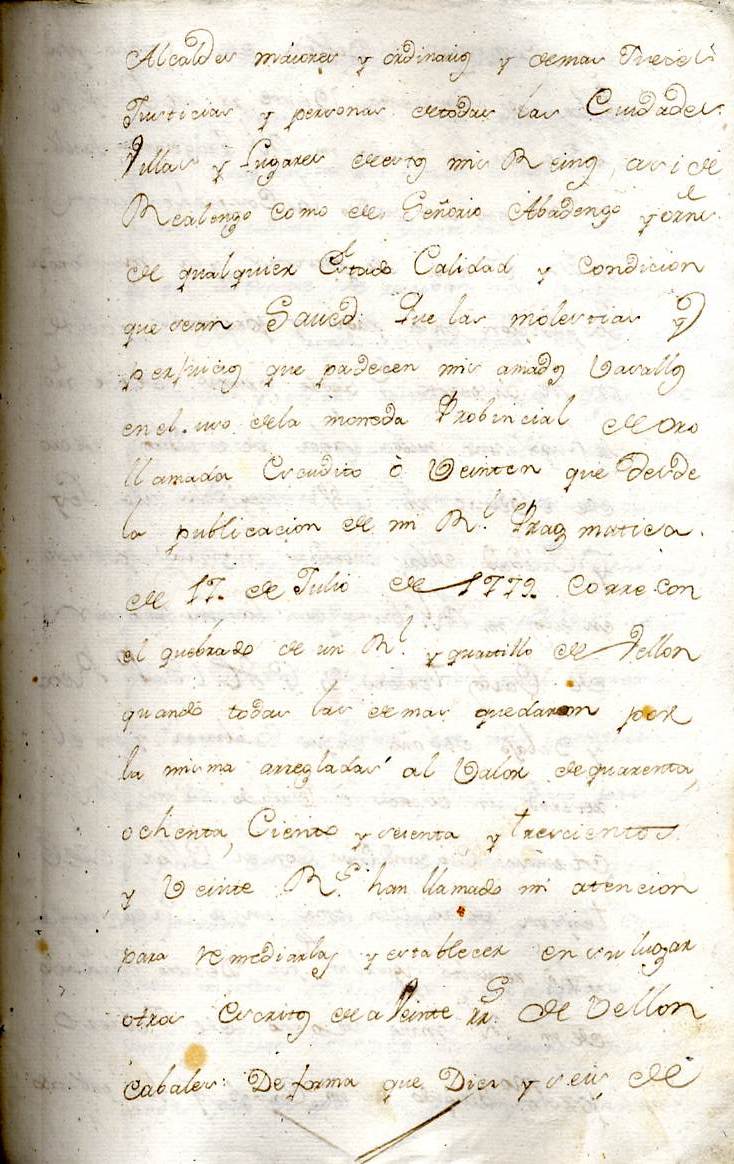 Alcaldes maiores y ordinarios y demas Jueces
Justicias y personas de todas las Ciudades
Villas y Lugares de estos mis Reinos, asi de
Realengo como de Señorio Abadengo y orns
de qualquier Estado Calidad, y condicion
que sean Saved: Que las molestias y
perjuicios que padecen mis amados Vasallos
en el uso de la moneda Probincial de oro
llamada Escudito ò Veinten que desde
la publicacion de mi Rl. Pragmatica
de 17. de Julio de 1779. corre con
el quebrado de un Rl. y quartillo de Vellon
quando todas las demas quedaron por
la misma arregladas al Valor de quarenta,
ochenta, Ciento y sesenta y trescientos
y Veinte Rs. han llamado mi atencion
para remediarlos y establecer en su lugar
otros Escritos de a Veinte rrs. de Vellon
Cabales: De forma que Dies y seis de